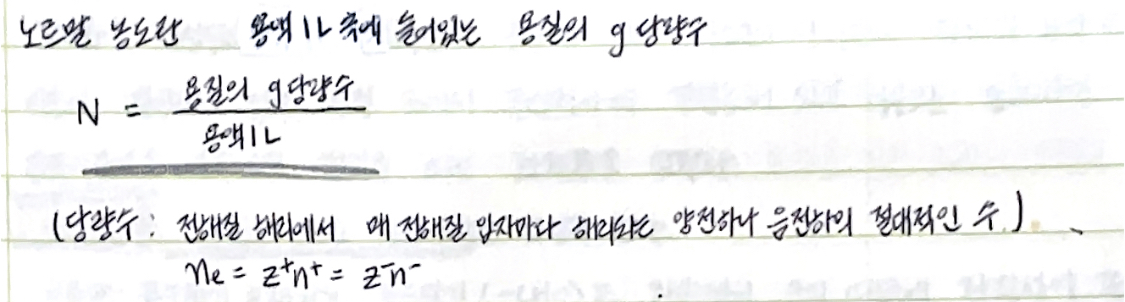 노르말 농도란 용액 1L 속에 들어있는 용질의 g당량수
N = 용질의 g당량수 / 용액 1L
(당량수: 전해질 해리에서 매 전해질 입자마다 해리되는 양전하나 음전하의 절대적인 수.)
ne = z⁺n⁺ = z⁻n⁻